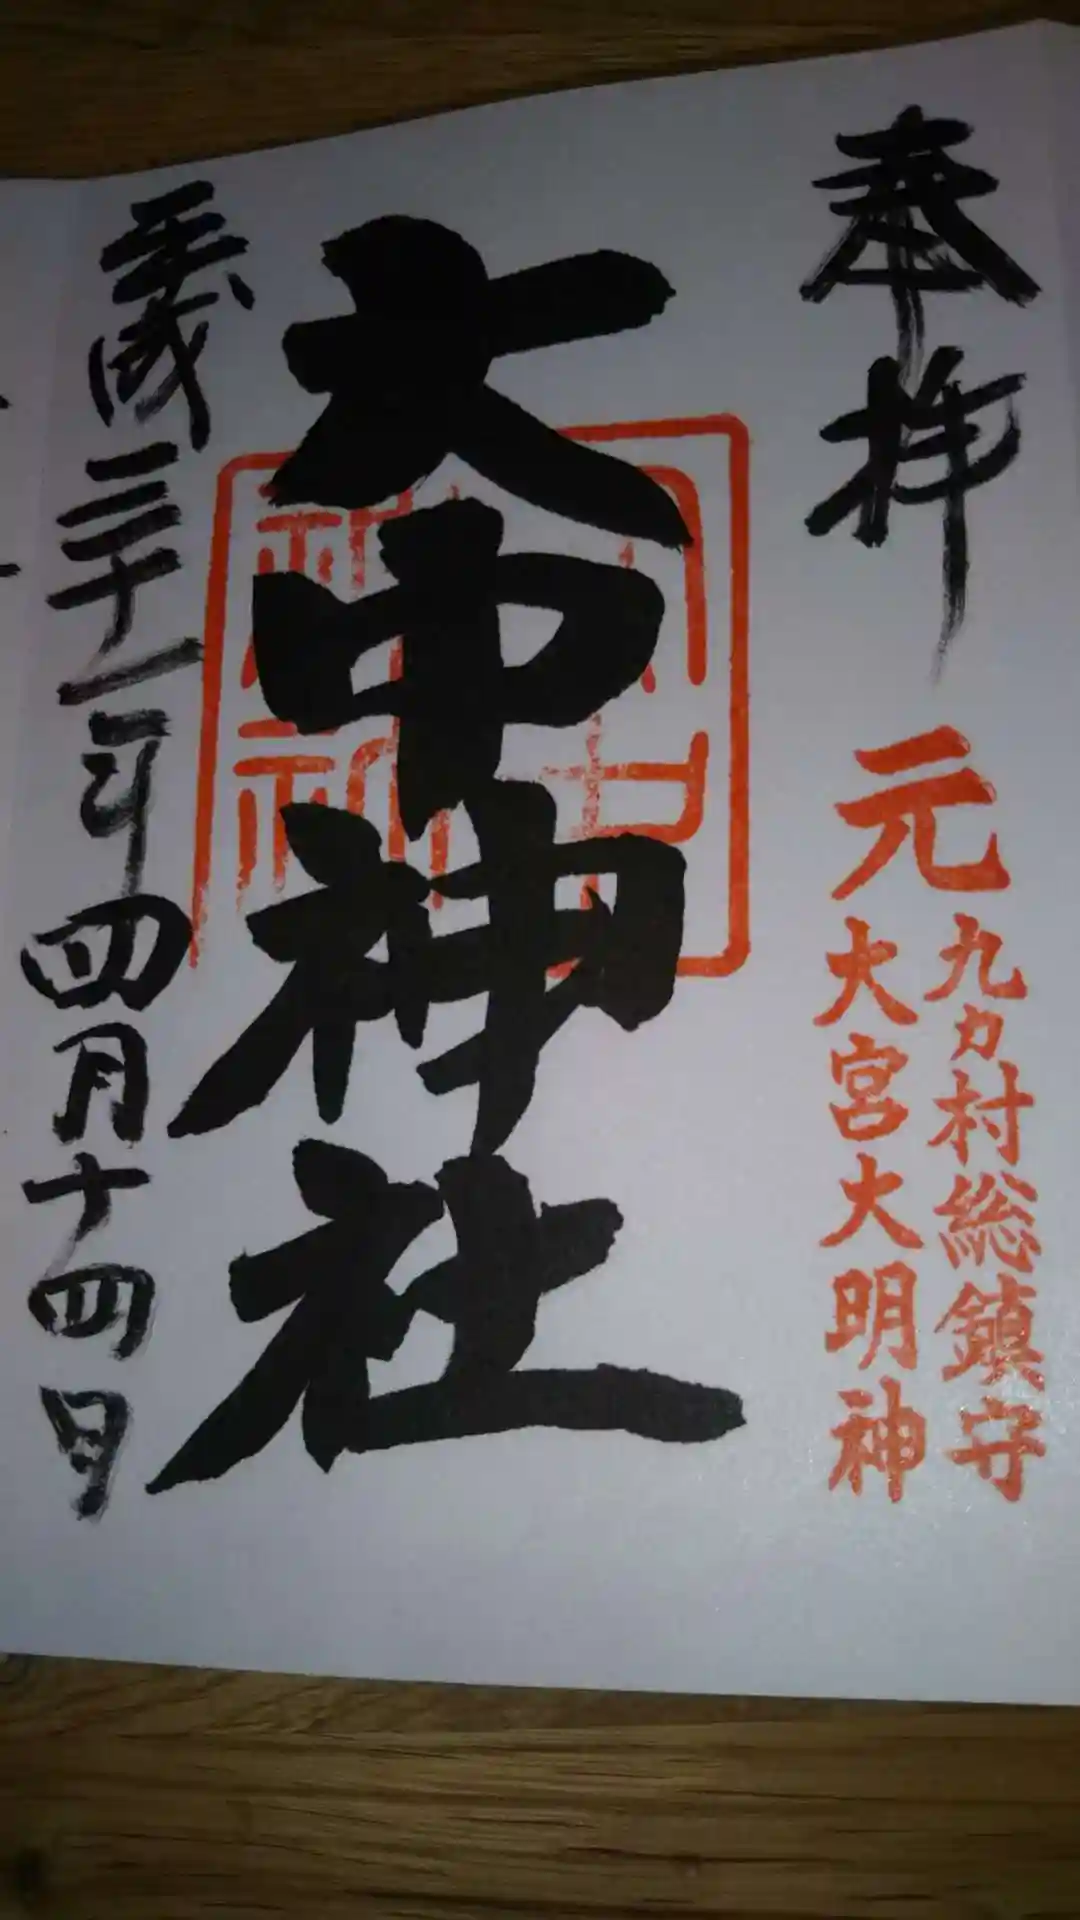 奉拝
元
九カ村総鎮守
大宮大明神
大中神社
平成三十一年四月十四日